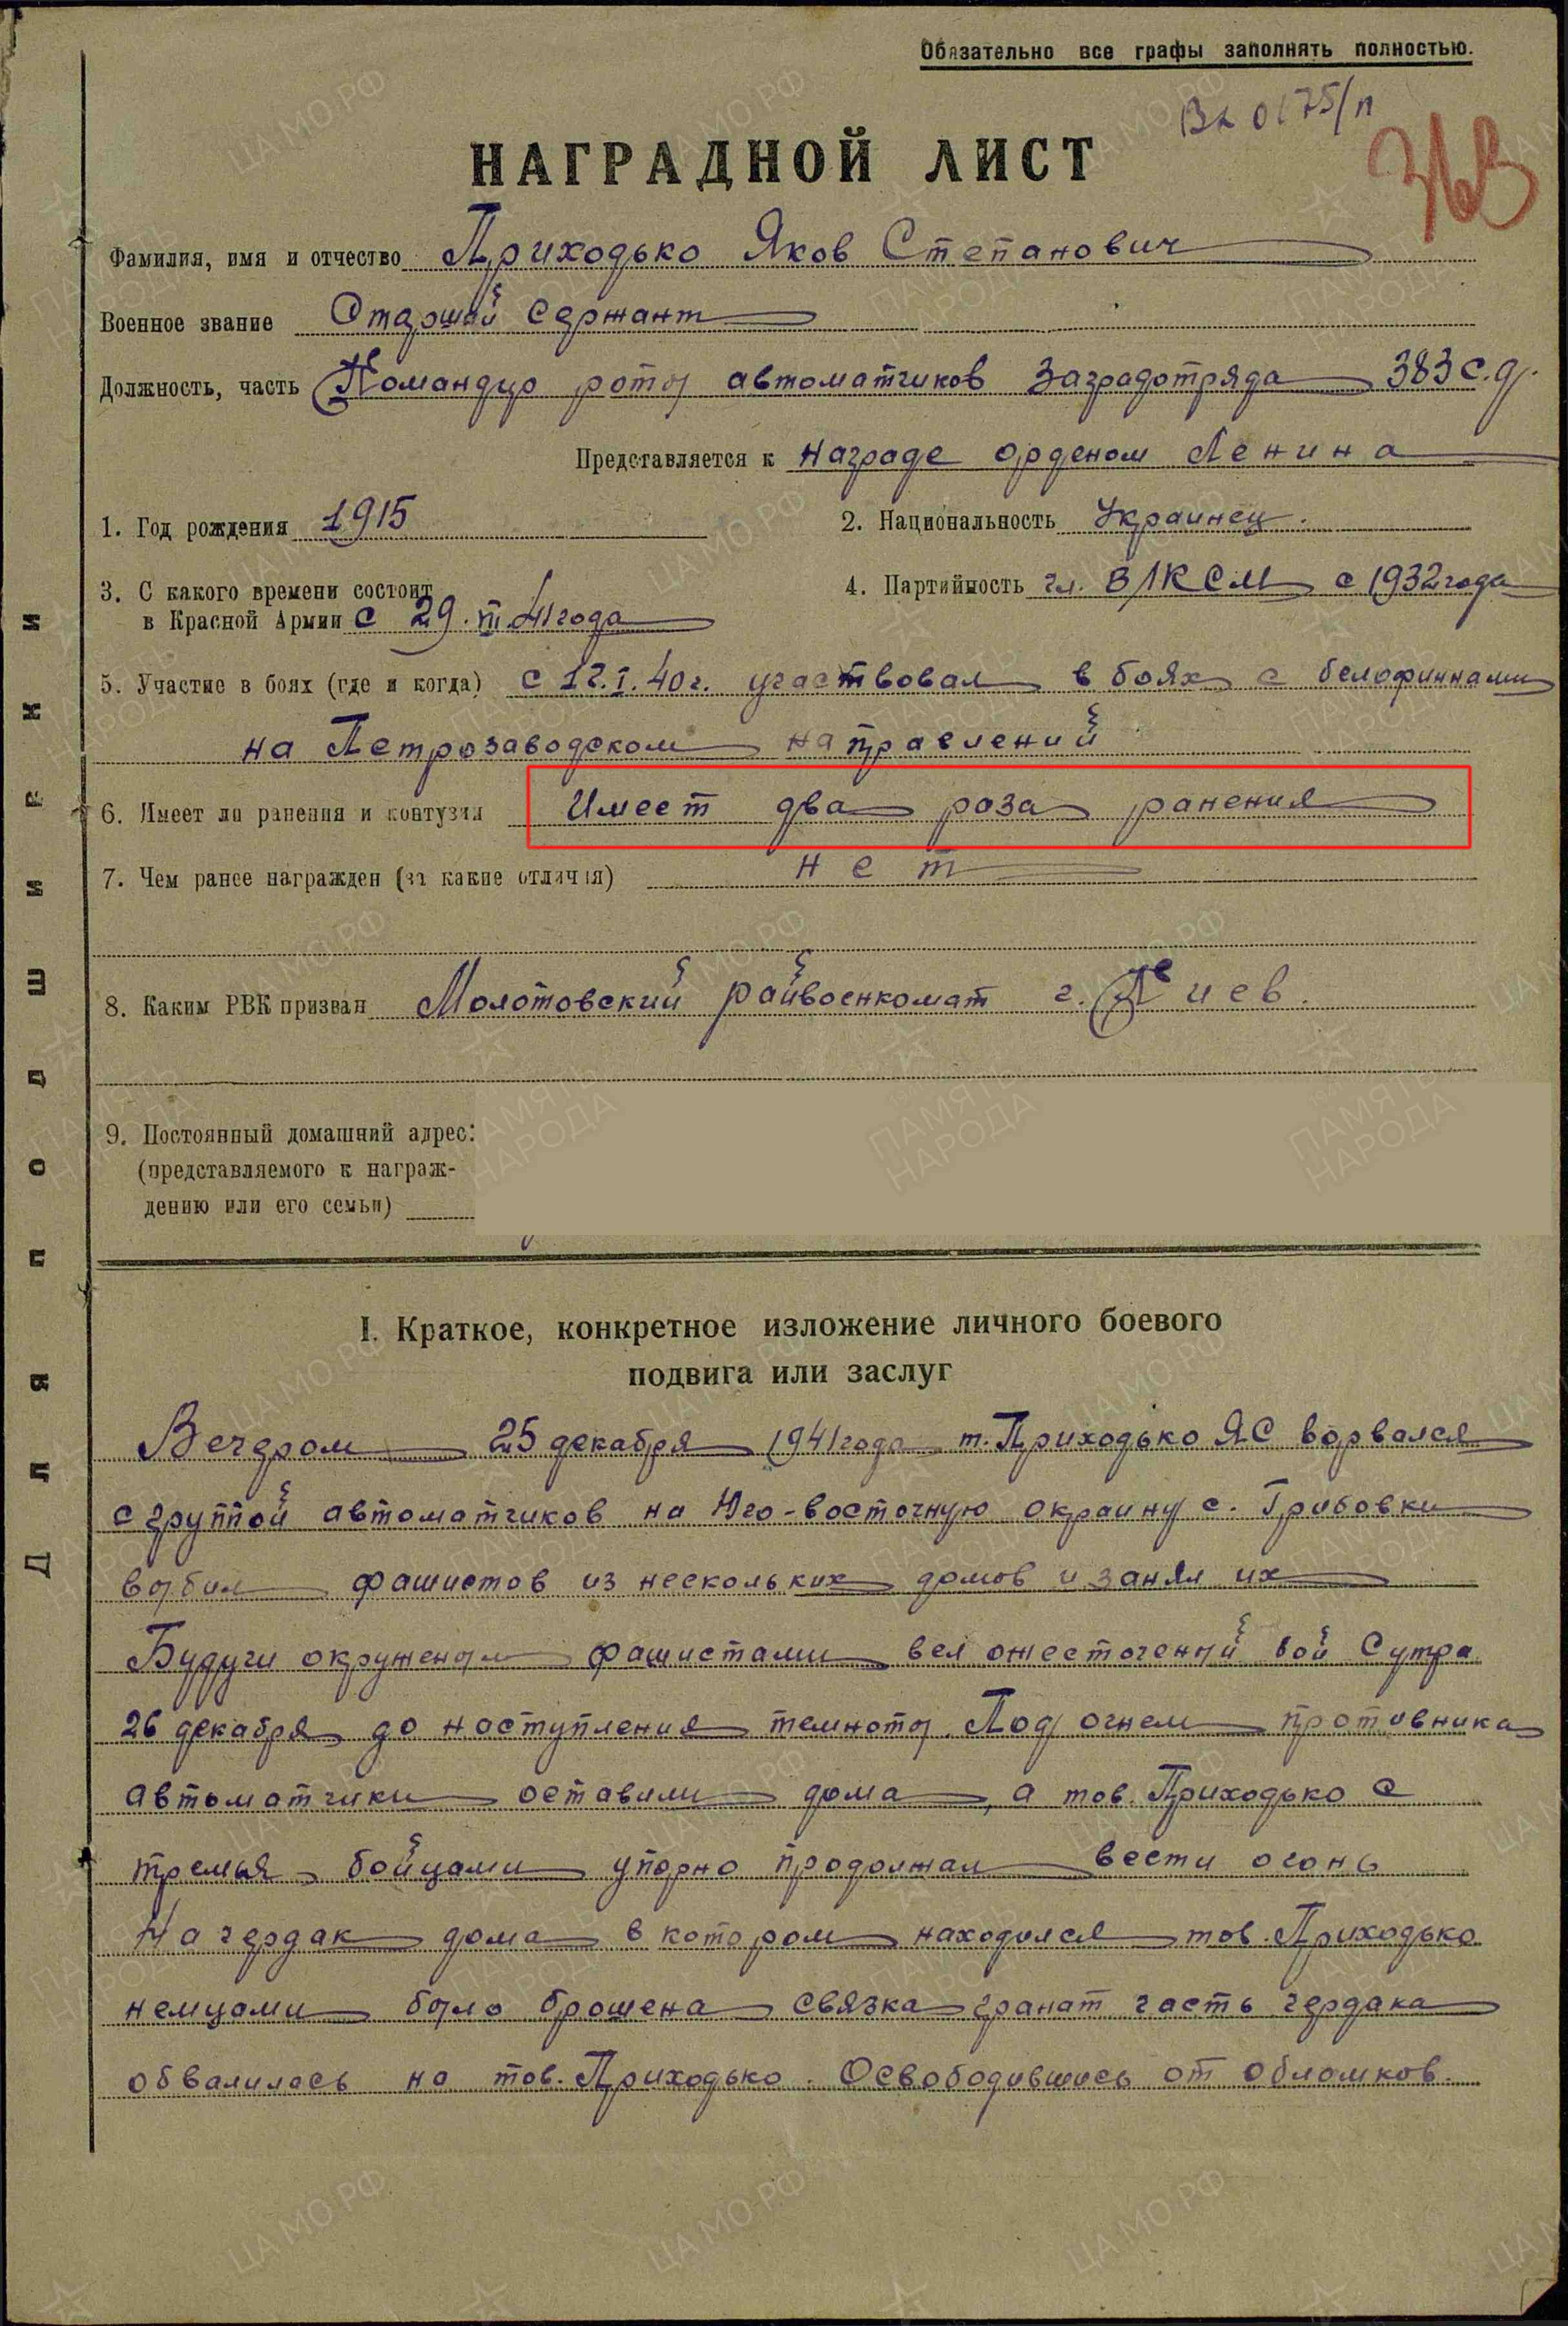 Обязательно все графы заполнять полностью.
НАГРАДНОЙ ЛИСТ
Фамилия, имя и отчество Приходько Яков Степанович
Военное звание Старший Сержант
Должность, часть Командир роты автоматчиков Заградотряда 383 с.д.
Представляется к награде орденом Ленина
1. Год рождения 1915
2. Национальность Украинец.
3. С какого времени состоит
в Красной Армии с 29. 41 года
4. Партийность чл. ВЛКСМ с 1932 года
5. Участие в боях (где и когда) с 12.I.40 г. участвовал в боях с белофиннами
на Петрозаводском направлений
6. Имеет ли ранения и контузии Имеет два раза ранения
7. Чем ранее награжден (за какие отличия) нет
8. Каким РВК призван Молотовский райвоенкомат г. Киев.
9. Постоянный домашний адрес:
(представляемого к награж-
дению или его семьи)
I. Краткое, конкретное изложение личного боевого
подвига или заслуг
Вечером 25 декабря 1941 года т. Приходько ЯС ворвался
с группой автоматчиков на Юго-восточную окраину с. Грибовки
выбил фашистов из нескольких домов и занял их
Будучи окруженым фашистами вел ожесточеный бой С утра
26 декабря до наступления темноты. Под огнем противника
автоматчики оставили дома, а тов. Приходько с
тремья бойцами упорно продолжал вести огонь
На чердак дома в котором находился тов. Приходько
немцами было брошена связка гранат часть чердака
обвалилась на тов. Приходько. Освободившись от обломков.
Для подшивки
ЦА МО РФ
ПАМЯТЬ НАРОДА